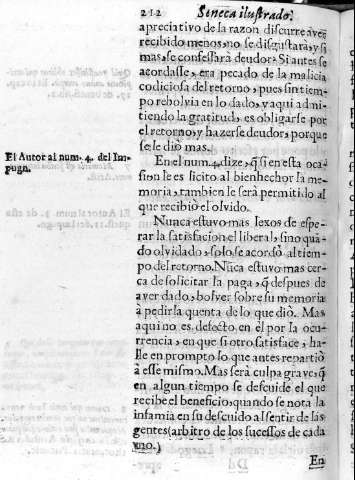 212 Seneca ilustrado.
apreciativo de la razon discurre aver
recibido menos, no se disgustarà, y si
mas, se confessarà deudor. Si antes se
acordasse, era pecado de la malicia
codiciosa del retorno, pues sin tiem-
po rebolvia en lo dado, y aqui admi-
tiendo la gratitud, es obligarse por
el retorno, y hazerse deudor, porque
se le diò mas.
El Autor al num. 4. del Im-
pugn.
En el num. 4. dize, q̃ si en esta oca-
sion le es licito al bienhechor la me-
moria, tambien le serà permitido al
que recibiò el olvido.
Nunca estuvo mas lexos de espe-
rar la satisfacion el liberal, sino quã-
do olvidado, y solo se acordò al tiem-
po del retorno. Nũca estuvo mas cer-
ca de solicitar la paga, q̃ despues de
aver dado, bolver sobre su memoria
à pedir la quenta de lo que diò. Mas
aqui no es defecto en èl por la ocu-
rrencia, en que si otro satisface, ha-
lle en prompto lo que antes repartiò
à esse mismo. Mas serà culpa grave, q̃
en algun tiempo se descuide el que
recibe el beneficio, quando se nota la
infamia en su descuido al sentir de las
gentes (arbitro de los sucessos de cada
uno.)
En